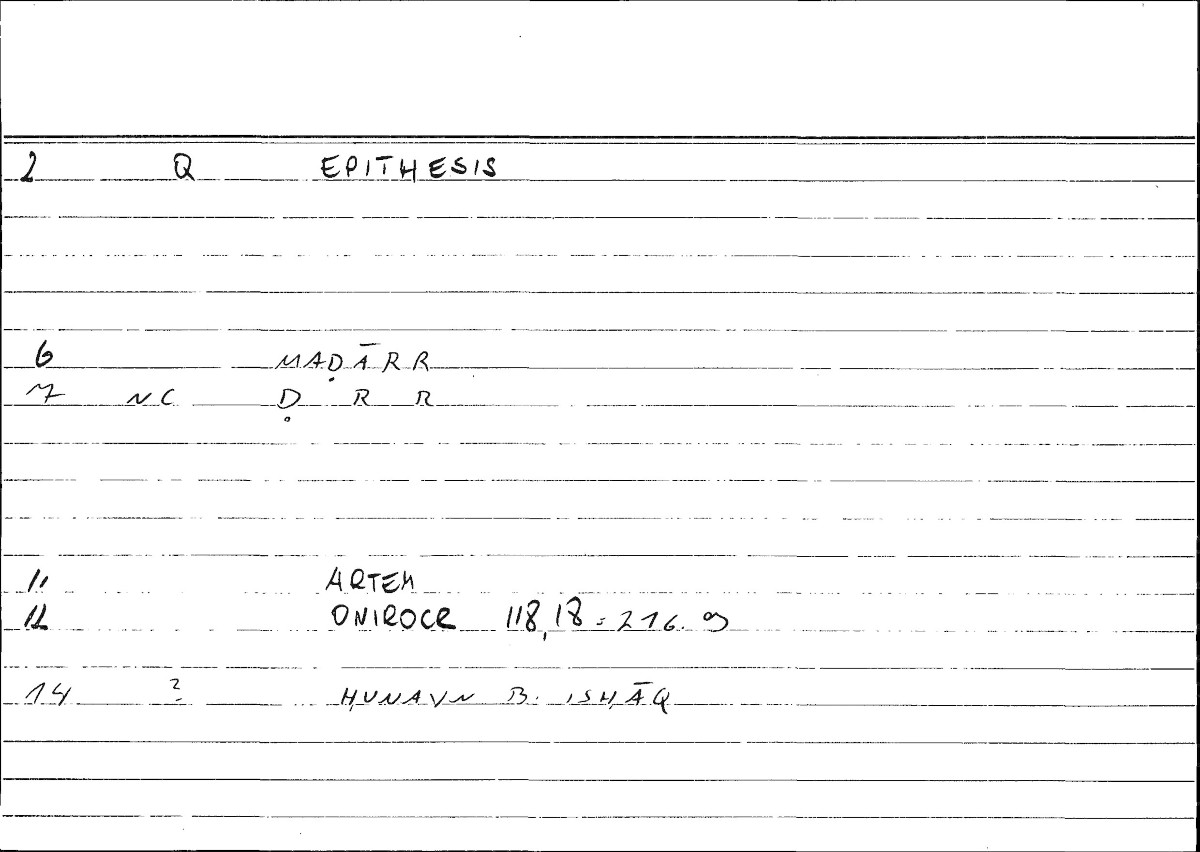 2 Q EPITHESIS
6 MAḌĀRR
7 NC Ḍ R R
11 ARTEM
12 ONIROCR 118,18 = 216.9
14 ? ḤUNAYN B. ISḤĀQ